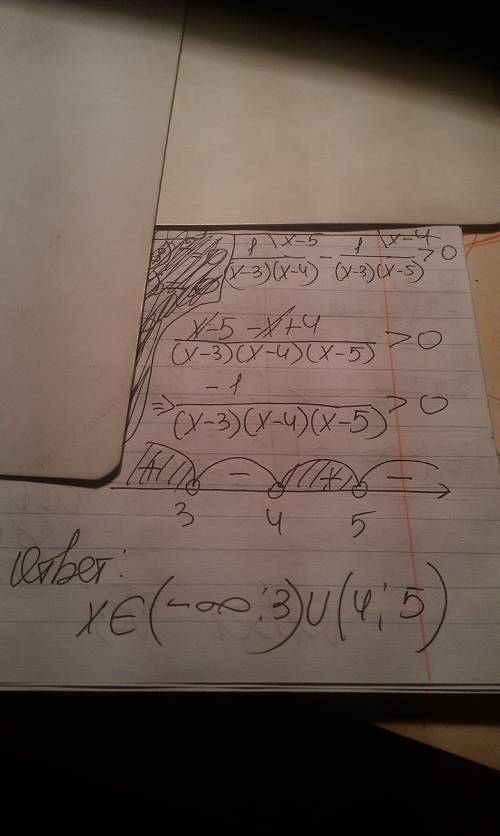 1\x-5 / (x-3)(x-4) - 1\x-4 / (x-3)(x-5) > 0
x-5-x+4 / (x-3)(x-4)(x-5) > 0
⇒ -1 / (x-3)(x-4)(x-5) > 0
+ - + -
3 4 5
Ответ:
x∈(-∞;3)∪(4;5)